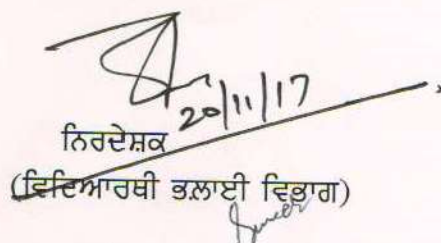 20/11/17
ਨਿਰਦੇਸ਼ਕ
(ਵਿਦਿਆਰਥੀ ਭਲਾਈ ਵਿਭਾਗ)